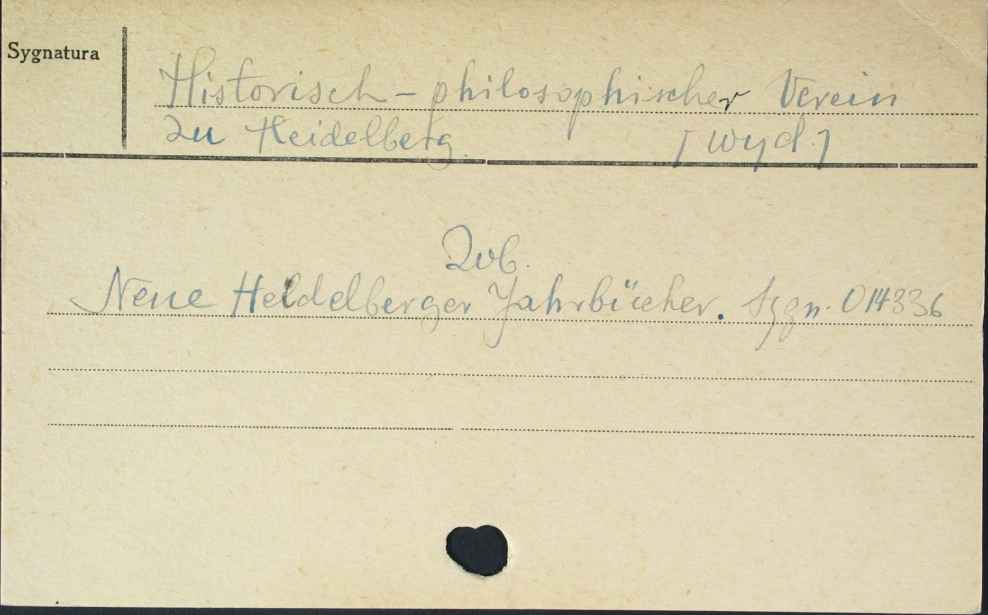 Sygnatura
Historisch-philosophischer Verein
zu Heidelberg. [wyd.]
Zob.
Neue Heidelberger Jahrbücher. Sygn. 014336